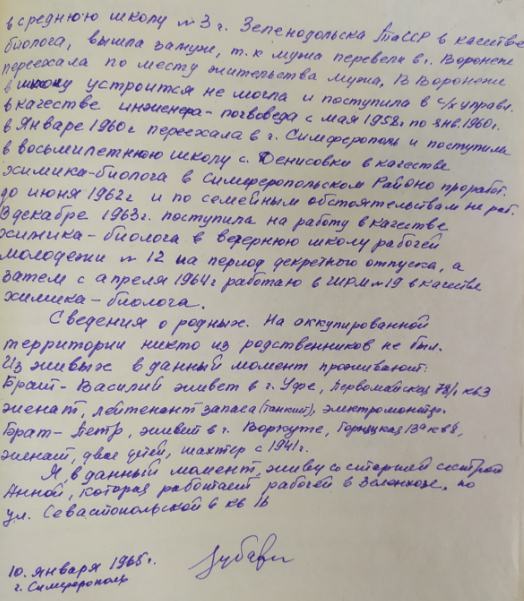 в среднюю школу №3 г. Зеленодольска ТаССР в качестве
биолога, вышла замуж, т.к мужа перевели в г. Воронеж
переехала по месту жительства мужа, В Воронеже
в школу устроится не могла и поступила в с/х управл.
в качестве инженера-почвоведа с мая 1958г по янв.1960г.
в Январе 1960г переехала в г. Симферополь и поступила
в восьмилетнюю школу с. Денисовки в качестве
химика-биолога в Симферопольском Районо проработ.
до июня 1962г и по семейным обстоятельствам не раб.
В декабре 1963г. поступила на работу в качестве
химика-биолога в вечернюю школу рабочей
молодежи №12 на период декретного отпуска, а
затем с апреля 1964г работаю в ШРМ №19 в качестве
химика-биолога.
Сведения о родных. На оккупированной
территории никто из родственников не был.
Из живых в данный момент проживают:
Брат-Василий живет в г. Уфе, Первомайская кв3
женат, лейтенант запаса (Танкист), электромонтер.
Брат-Петр, живет в г. Воркуте,
женат, двое детей, шахтер с 1941г.
Я в данный момент живу со старшей сестрой
Анной, которая работает рабочей в Зеленхозе, по
ул. Севастопольской 6 кв 16
10. января 1965г.
г. Симферополь